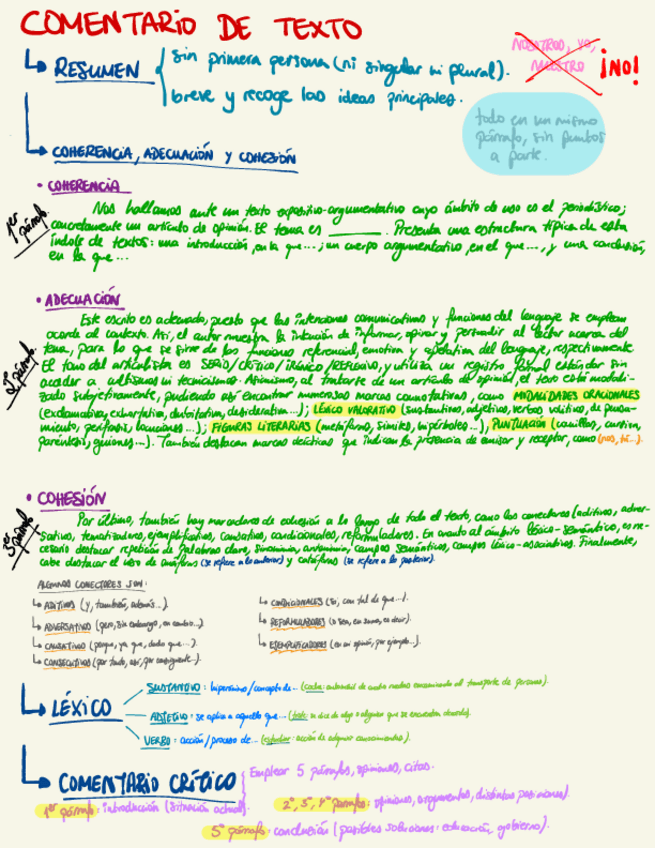 COMENTARIO DE TEXTO
RESUMEN
sin primera persona (ni singular ni plural).
breve y recoge las ideas principales.
NOSOTROS, YO,
NUESTRO
¡NO!
todo en un mismo
párrafo, sin puntos
a parte.
COHERENCIA, ADECUACIÓN Y COHESIÓN
• COHERENCIA
1er párrafo.
Nos hallamos ante un texto expositivo-argumentativo cuyo ámbito de uso es el periodístico;
concretamente un artículo de opinión. El tema es ________. Presenta una estructura típica de esta
índole de textos: una introducción, en la que...; un cuerpo argumentativo, en el que..., y una conclusión,
en la que...
• ADECUACIÓN
2º párrafo.
Este escrito es adecuado, puesto que las intenciones comunicativas y funciones del lenguaje se emplean
acorde al contexto. Así, el autor muestra la intención de informar, opinar y persuadir al lector acerca del
tema, para lo que se sirve de las funciones referencial, emotiva y apelativa del lenguaje, respectivamente.
El tono del articulista es SERIO/CRÍTICO/IRÓNICO/REFLEXIVO, y utiliza un registro formal estándar sin
acceder a cultismos ni tecnicismos. Asimismo, al tratarse de un artículo de opinión, el texto está modali-
zado subjetivamente, pudiendo así encontrar numerosas marcas connotativas, como MODALIDADES ORACIONALES
(exclamativa, exhortativa, dubitativa, desiderativa...); LÉXICO VALORATIVO (sustantivos, adjetivos, verbos volitivos, de pensa-
miento, perífrasis, locuciones...); FIGURAS LITERARIAS (metáforas, símiles, hipérboles...), PUNTUACIÓN (comillas, cursiva,
paréntesis, guiones...). También destacan marcas deícticas que indican la presencia de emisor y receptor, como (nos, tú...).
• COHESIÓN
3er párrafo.
Por último, también hay marcadores de cohesión a lo largo de todo el texto, como los conectores (aditivos, adver-
sativos, tematizadores, ejemplificativos, causativos, condicionales, reformuladores). En cuanto al ámbito léxico-semántico, es ne-
cesario destacar repetición de palabras clave, sinonimia, antonimia, campos semánticos, campos léxico-asociativos. Finalmente,
cabe destacar el uso de anáforas (se refiere a lo anterior) y catáforas (se refiere a lo posterior).
ALGUNOS CONECTORES SON:
ADITIVOS (y, también, además...).
ADVERSATIVOS (pero, sin embargo, en cambio...).
CAUSATIVOS (porque, ya que, dado que...).
CONSECUTIVOS (por tanto, así, por consiguiente..).
CONDICIONALES (si, con tal de que...).
REFORMULADORES (o sea, en suma, es decir).
EJEMPLIFICADORES (en mi opinión, por ejemplo...).
LÉXICO
SUSTANTIVO: hiperónimo/concepto de... (coche: automóvil de cuatro ruedas encaminado al transporte de personas).
ADJETIVO: se aplica a aquello que... (: se dice de algo o alguien que se encuentra).
VERBO: acción/proceso de... (estudiar: acción de adquirir conocimientos).
COMENTARIO CRÍTICO
Emplear 5 párrafos, opiniones, citas.
1er párrafo: introducción (situación actual).
2º, 3º, 4º párrafo: opiniones, argumentos, distintas posiciones.
5º párrafo: conclusión (posibles soluciones: educación, gobierno).